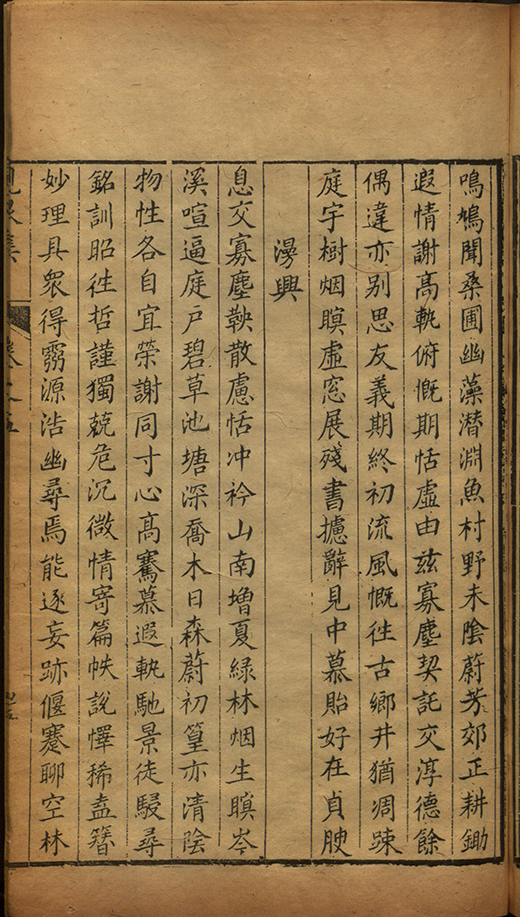 鳴鳩聞桑圃幽藻潛淵魚村野未陰蔚芳郊正耕鋤
遐情謝高軌俯慨期恬虛由茲寡塵契託交淳德餘
偶違亦別思友義期終初流風慨徃古鄉井猶凋踈
庭宇樹烟暝虛窓展殘書攄辭見中慕貽好在貞腴
漫興
息交寡塵鞅散慮恬冲衿山南增夏綠林烟生暝岑
溪喧逼庭戶碧草池塘深喬木日森蔚初篁亦清陰
物性各自宜榮謝同寸心高騫慕遐軌馳景徒駸尋
銘訓昭徃哲謹獨兢危沉微情寄篇帙說懌稀盍簪
妙理具衆得窮源浩幽尋焉能逐妄跡偃蹇聊空林